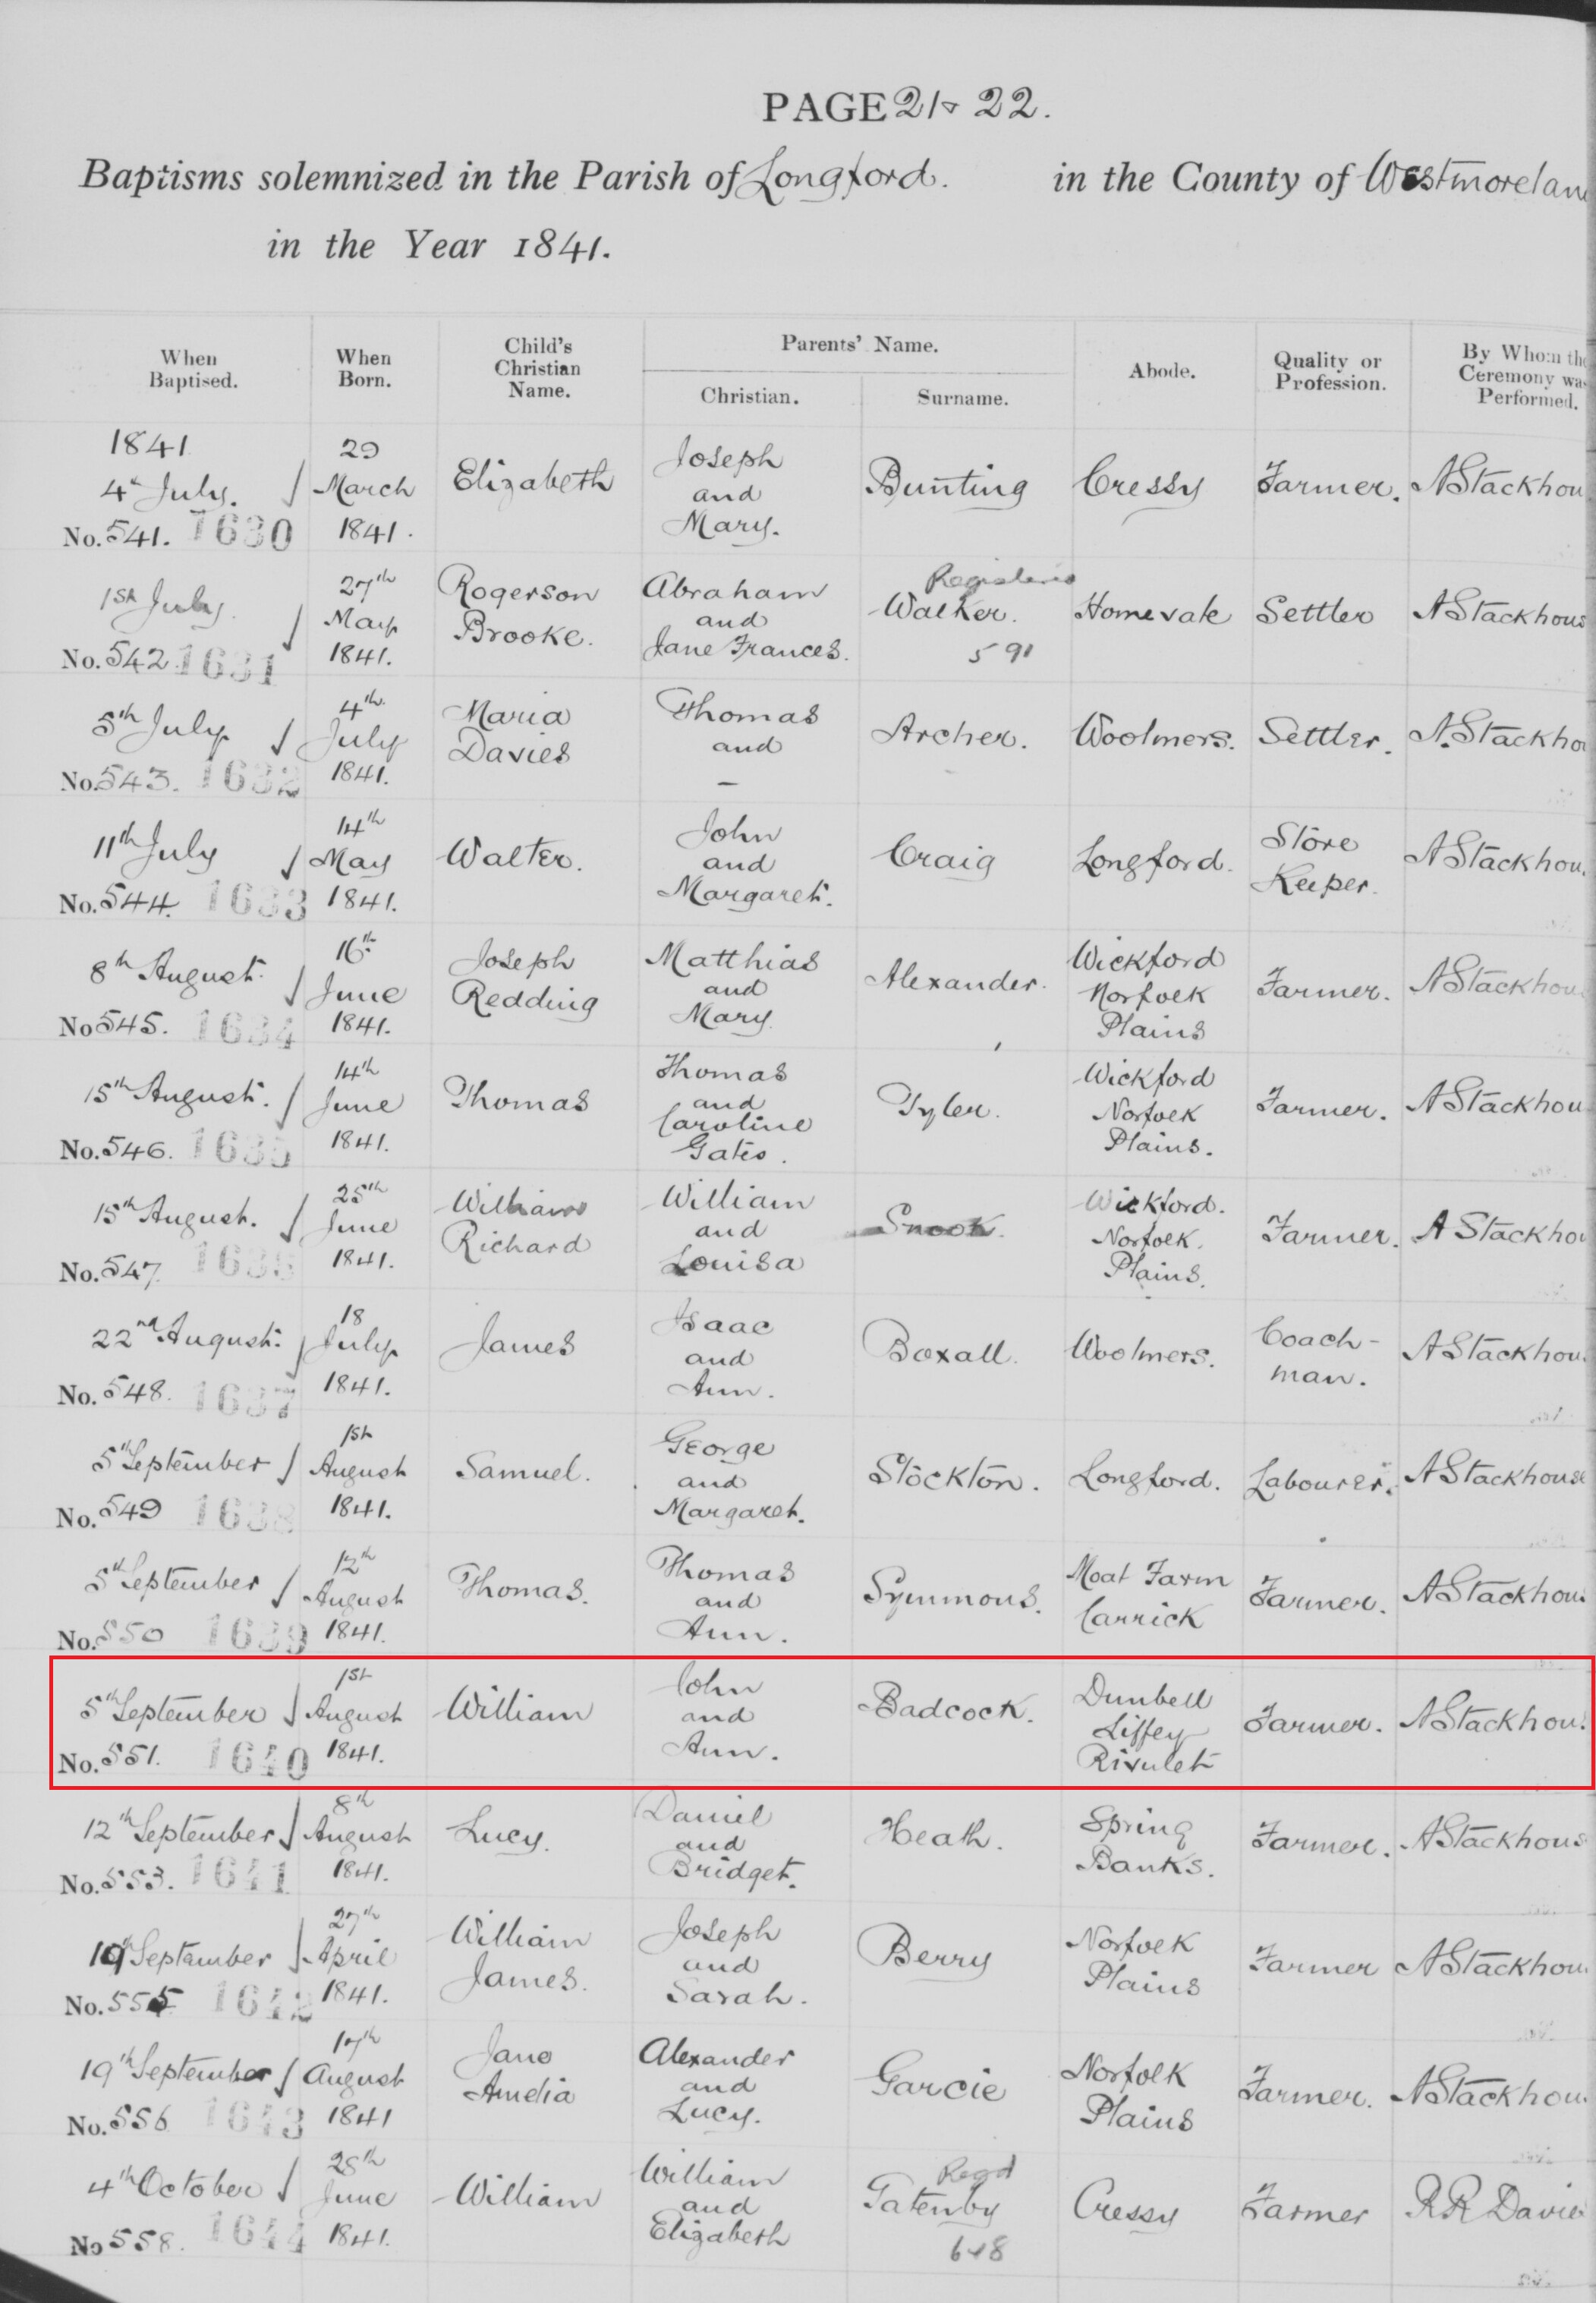 PAGE 21 & 22.
Baptisms solemnized in the Parish of Longford. in the County of Westmorelan
in the Year 1841.
When Baptised.
When Born.
Child's Christian Name.
Parents' Name.
Christian.
Surname.
Abode.
Quality or Profession.
By Whom the Ceremony was Performed.
1841
4th July.
No. 541. 1630
29 March 1841.
Elizabeth
Joseph and Mary.
Bunting
Cressy
Farmer.
A Stackhou
1st July.
No. 542 1631
27th May 1841.
Rogerson Brooke.
Abraham and Jane Frances.
Registered
Walker.
591
Homevale
Settler
A Stackhous
5th July
No. 543. 1632
4th July 1841.
Maria Davies
Thomas and –
Archer.
Woolmers.
Settler.
A. Stackhou
11th July
No. 544. 1633
14th May 1841.
Walter.
John and Margaret.
Craig
Longford.
Store Keeper.
A Stackhou
8th August.
No 545. 1634
16th June 1841.
Joseph Redding
Matthias and Mary
Alexander.
Wickford Norfolk Plains
Farmer.
A Stackhou
15th August.
No. 546. 1635
14th June 1841.
Thomas
Thomas and Caroline Gates.
Tyler.
Wickford Norfolk Plains.
Farmer.
A Stackhou
15th August.
No. 547 1636
25th June 1841.
William Richard
William and Louisa
Snook.
Wickford. Norfolk. Plains.
Farmer.
A Stackhou
22nd August.
No. 548. 1637
18 July 1841.
James
Isaac and Ann.
Boxall.
Woolmers.
Coach-man.
A Stackhou
5th September
No. 549 1638
1st August 1841.
Samuel.
George and Margaret.
Stockton.
Longford.
Labourer.
A Stackhouse
5th September
No. 550 1639
12th August 1841.
Thomas.
Thomas and Ann.
Symmons.
Moat Farm Carrick
Farmer.
A Stackhous
5th September
No. 551. 1640
1st August 1841.
William
John and Ann.
Badcock.
Dunbell Liffey Rivulet
Farmer.
A Stackhous
12th September
No. 553. 1641
8th August 1841.
Lucy.
Daniel and Bridget.
Heath.
Spring Banks.
Farmer.
A Stackhous
19th September
No. 555 1642
27th April 1841.
William James.
Joseph and Sarah.
Berry
Norfolk Plains
Farmer
A Stackhou
19th September
No. 556 1643
17th August 1841
Jane Amelia
Alexander and Lucy.
Garcie
Norfolk Plains
Farmer.
A Stackhou
4th October
No 558. 1644
28th June 1841.
William
William and Elizabeth
Regd
Gatenby
648
Cressy
Farmer
R R Davies